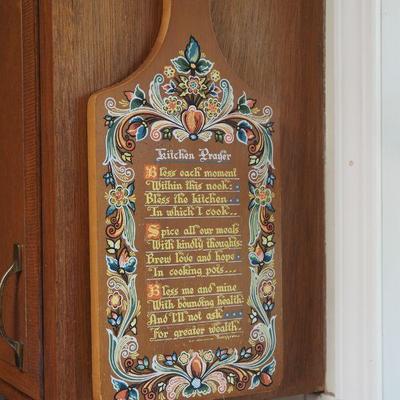 Kitchen Prayer
Bless each moment
Within this nook:
Bless the kitchen
In which I cook..
Spice all our meals
With kindly thoughts:
Brew love and hope
In cooking pots...
Bless me and mine
With bounding health:
And I'll not ask
For greater wealth.